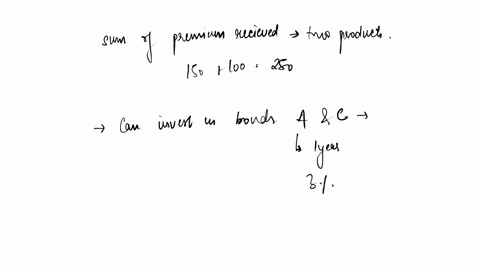 sum of premium recieved → two products.
150 + 100 = 250
→ Can invest in bonds A & C →
↳ 1 year
3%.